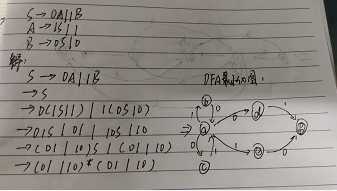 S → 0A|1B
A → 1S|1
B → 0S|0
解:
S → 0A|1B
DFA最小化图:
→ S
→ 0(1S|1) | 1(0S|0)
→ 01S | 01 | 10S | 10
→ (01|10)S | (01|10)
→ (01|10)*(01|10)
⇒
b
1
0
a
0
d
1
0
1
1
e
0
c